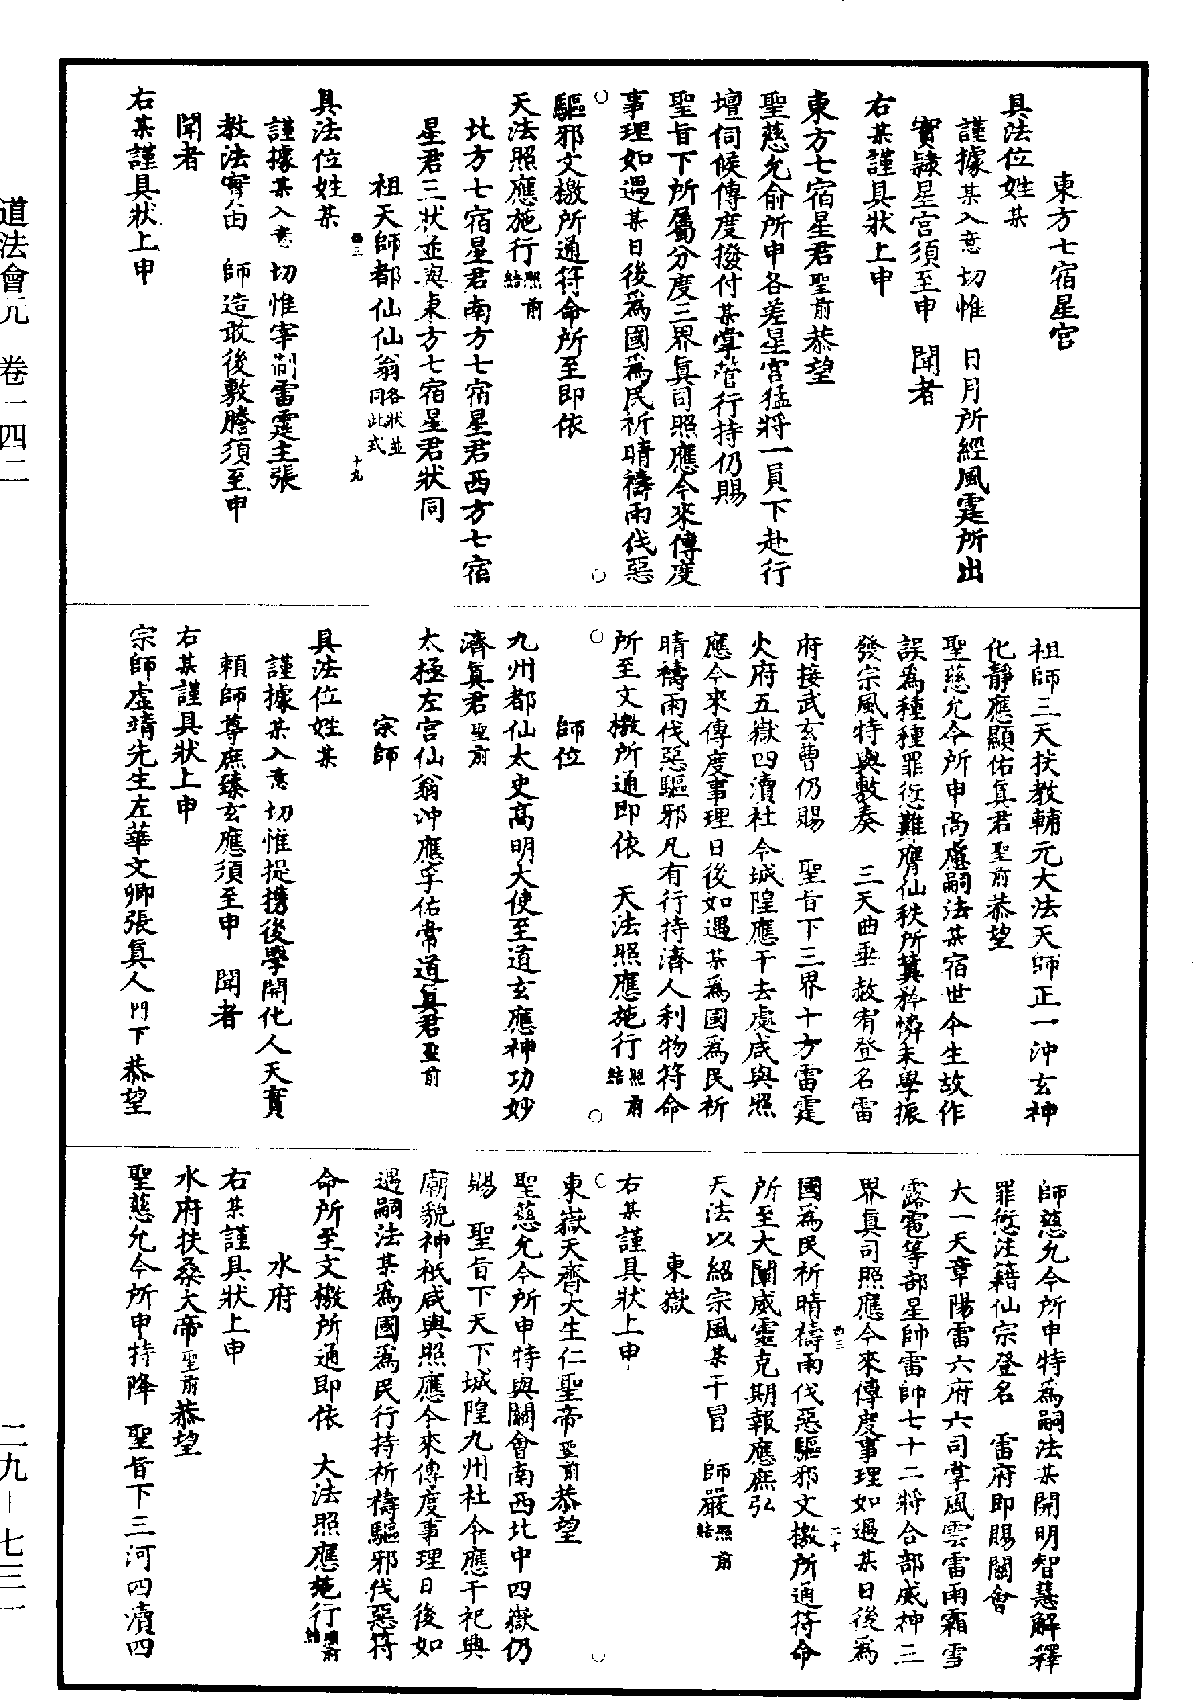 東方七宿星官
具法位姓某
謹據某入意　切惟　日月所經風霆所出
實隸星宮須至申　聞者
右某謹具狀上申
東方七宿星君聖前恭望
聖慈允俞所申各差星官猛將一員下赴行
壇伺候傳度撥付某掌管行持仍賜
聖旨下所屬分度三界真司照應今來傳度
事理如遇某日後為國為民祈晴禱雨伐惡
驅邪文檄所通符命所至即依
天法照應施行照前結
北方七宿星君南方七宿星君西方七宿
星君三狀並與東方七宿星君狀同
祖天師都仙仙翁各狀並同此式
十九
具法位姓某
謹據某入意　切惟宰制雷霆主張
教法實由　師造敢後敷謄須至申
聞者
右某謹具狀上申
祖師三天扶教輔元大法天師正一沖玄神
化靜應顯佑真君聖前恭望
聖慈允今所申尚慮嗣法某宿世今生故作
誤為種種罪愆難膺仙秩所冀矜憐末學振
發宗風特與敷奏　三天曲垂赦宥登名雷
府接武玄曹仍賜　聖旨下三界十方雷霆
火府五嶽四瀆社令城隍應干去處咸與照
應今來傳度事理日後如遇某為國為民祈
晴禱雨伐惡驅邪凡有行持濟人利物符命
所至文檄所通即依　天法照應施行照前結
師位
九州都仙太史高明大使至道玄應神功妙
濟真君聖前
太極左宮仙翁沖應孚佑常道真君聖前
宗師
具法位姓某
謹據某入意　切惟提携後學開化人天實
賴師尊庶臻玄應須至申　聞者
右某謹具狀上申
宗師虛靖先生左華文卿張真人門下恭望
師慈允今所申特為嗣法某開明智慧解釋
罪愆注籍仙宗登名　雷府即賜關會
大一天章陽雷六府六司掌風雲雷雨霜雪
露電等部星帥雷帥七十二將合部威神三
界真司照應今來傳度事理如遇某日後為
國為民祈晴禱雨伐惡驅邪文檄所通符命
所至大闡威靈克期報應庶弘
天法以紹宗風某干冒　師嚴照前結
二十
東嶽
右某謹具狀上申
東嶽天齊大生仁聖帝聖前恭望
聖慈允今所申特與關會南西北中四嶽仍
賜　聖旨下天下城隍九州社令應干祀典
廟貌神祇咸與照應今來傳度事理日後如
遇嗣法某為國為民行持祈禱驅邪伐惡符
命所至文檄所通即依　大法照應施行照前結
水府
右某謹具狀上申
水府扶桑大帝聖前恭望
聖慈允今所申持降　聖旨下三河四瀆四
道法會元　卷一四二
二九—七三一